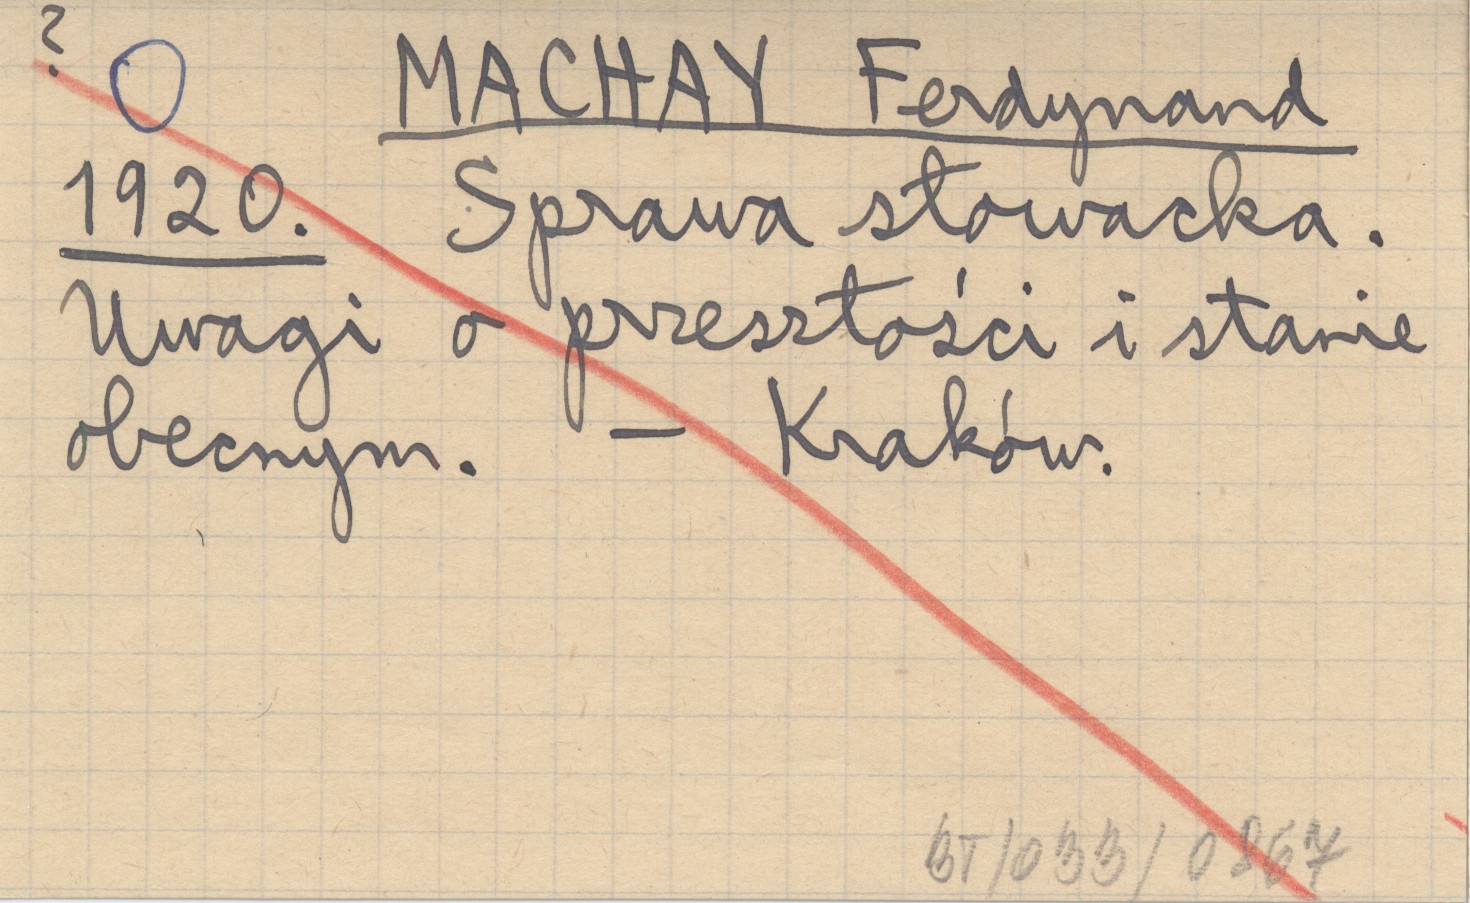 ?
MACHAY Ferdynand
1920. Sprawa słowacka.
Uwagi o przeszłości i stanie
obecnym. — Kraków.
BT/033/0867